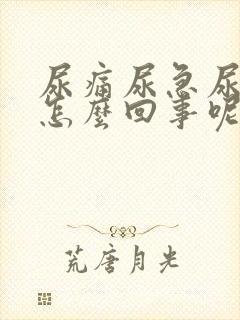 尿痛尿急尿
怎麼回事呢
荒唐月光